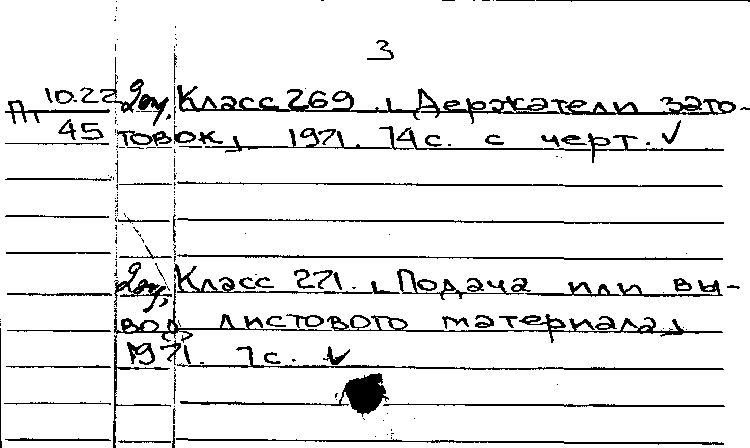 3
10.22 2оу, Класс 269. [Держатели заго-
Пт
45 товок] 1971. 74 с. с черт. ✓
2оу, Класс 271. [Подача или вы-
вод листового материала]
1971. 7 с. ✓